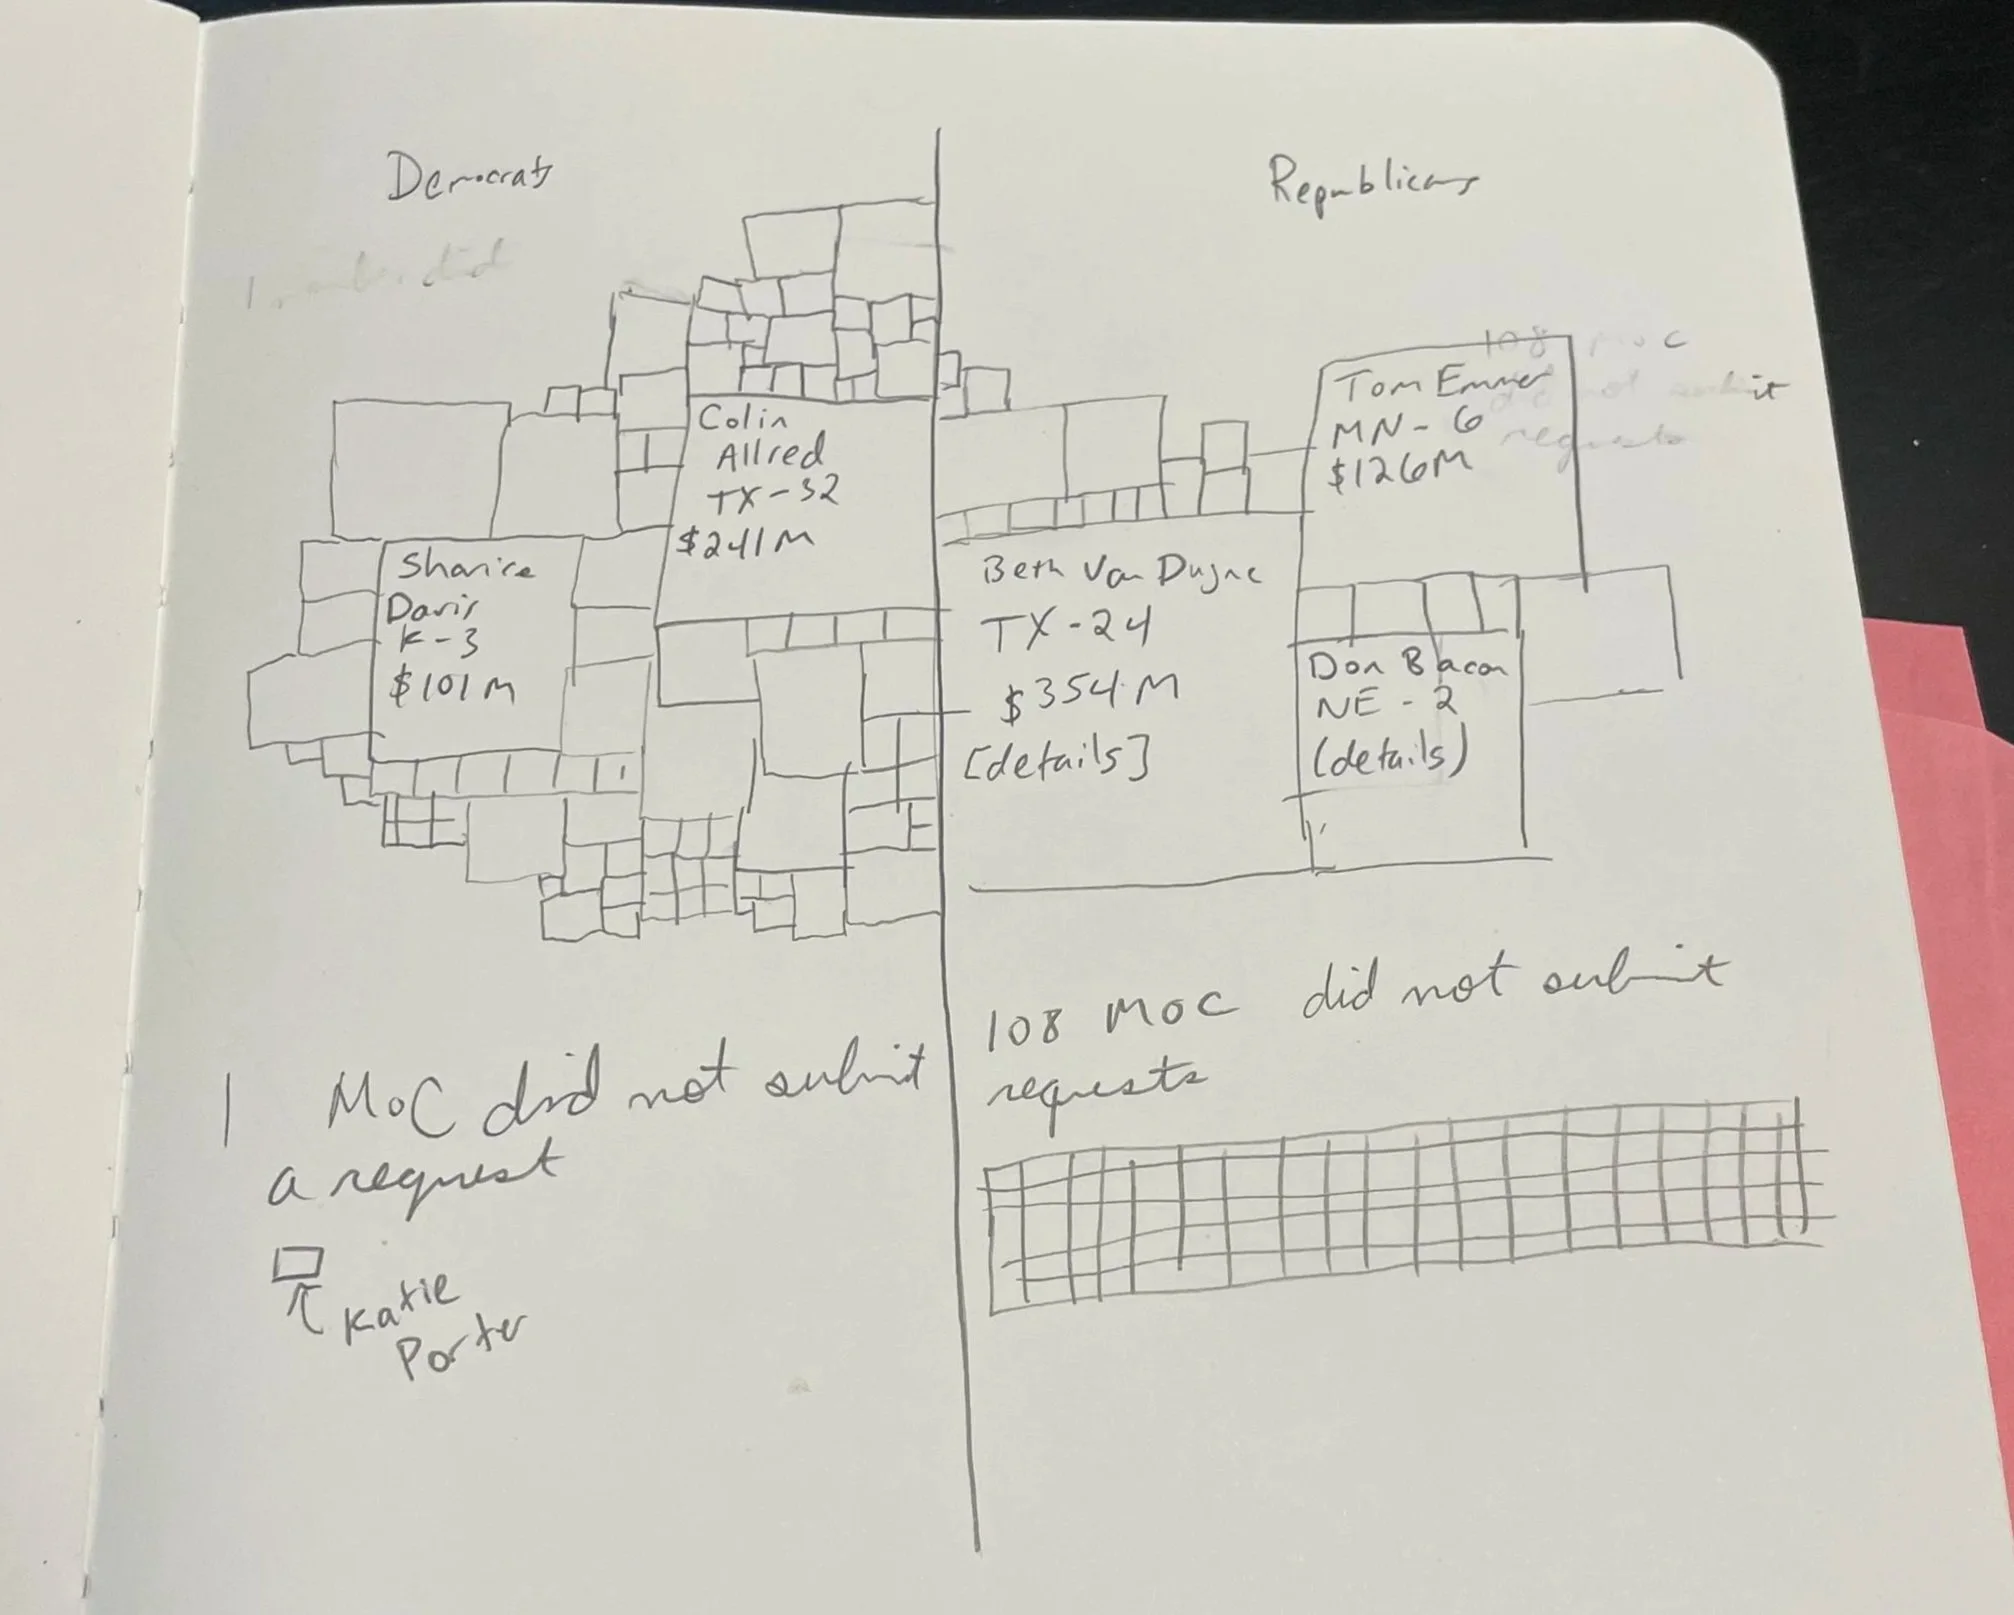 Democrats
Republicans
1 did
108 MOC
did not submit
requests
Colin
Allred
TX-32
$241M
Tom Emmer
MN-6
$126M
Sharice
Davis
K-3
$101M
Beth Van Duyne
TX-24
$354M
[details]
Don Bacon
NE-2
(details)
1 MoC did not submit
a request
Katie
Porter
108 MOC did not submit
requests